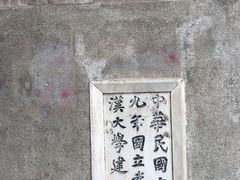 中華民國
九年國立武
漢大學建